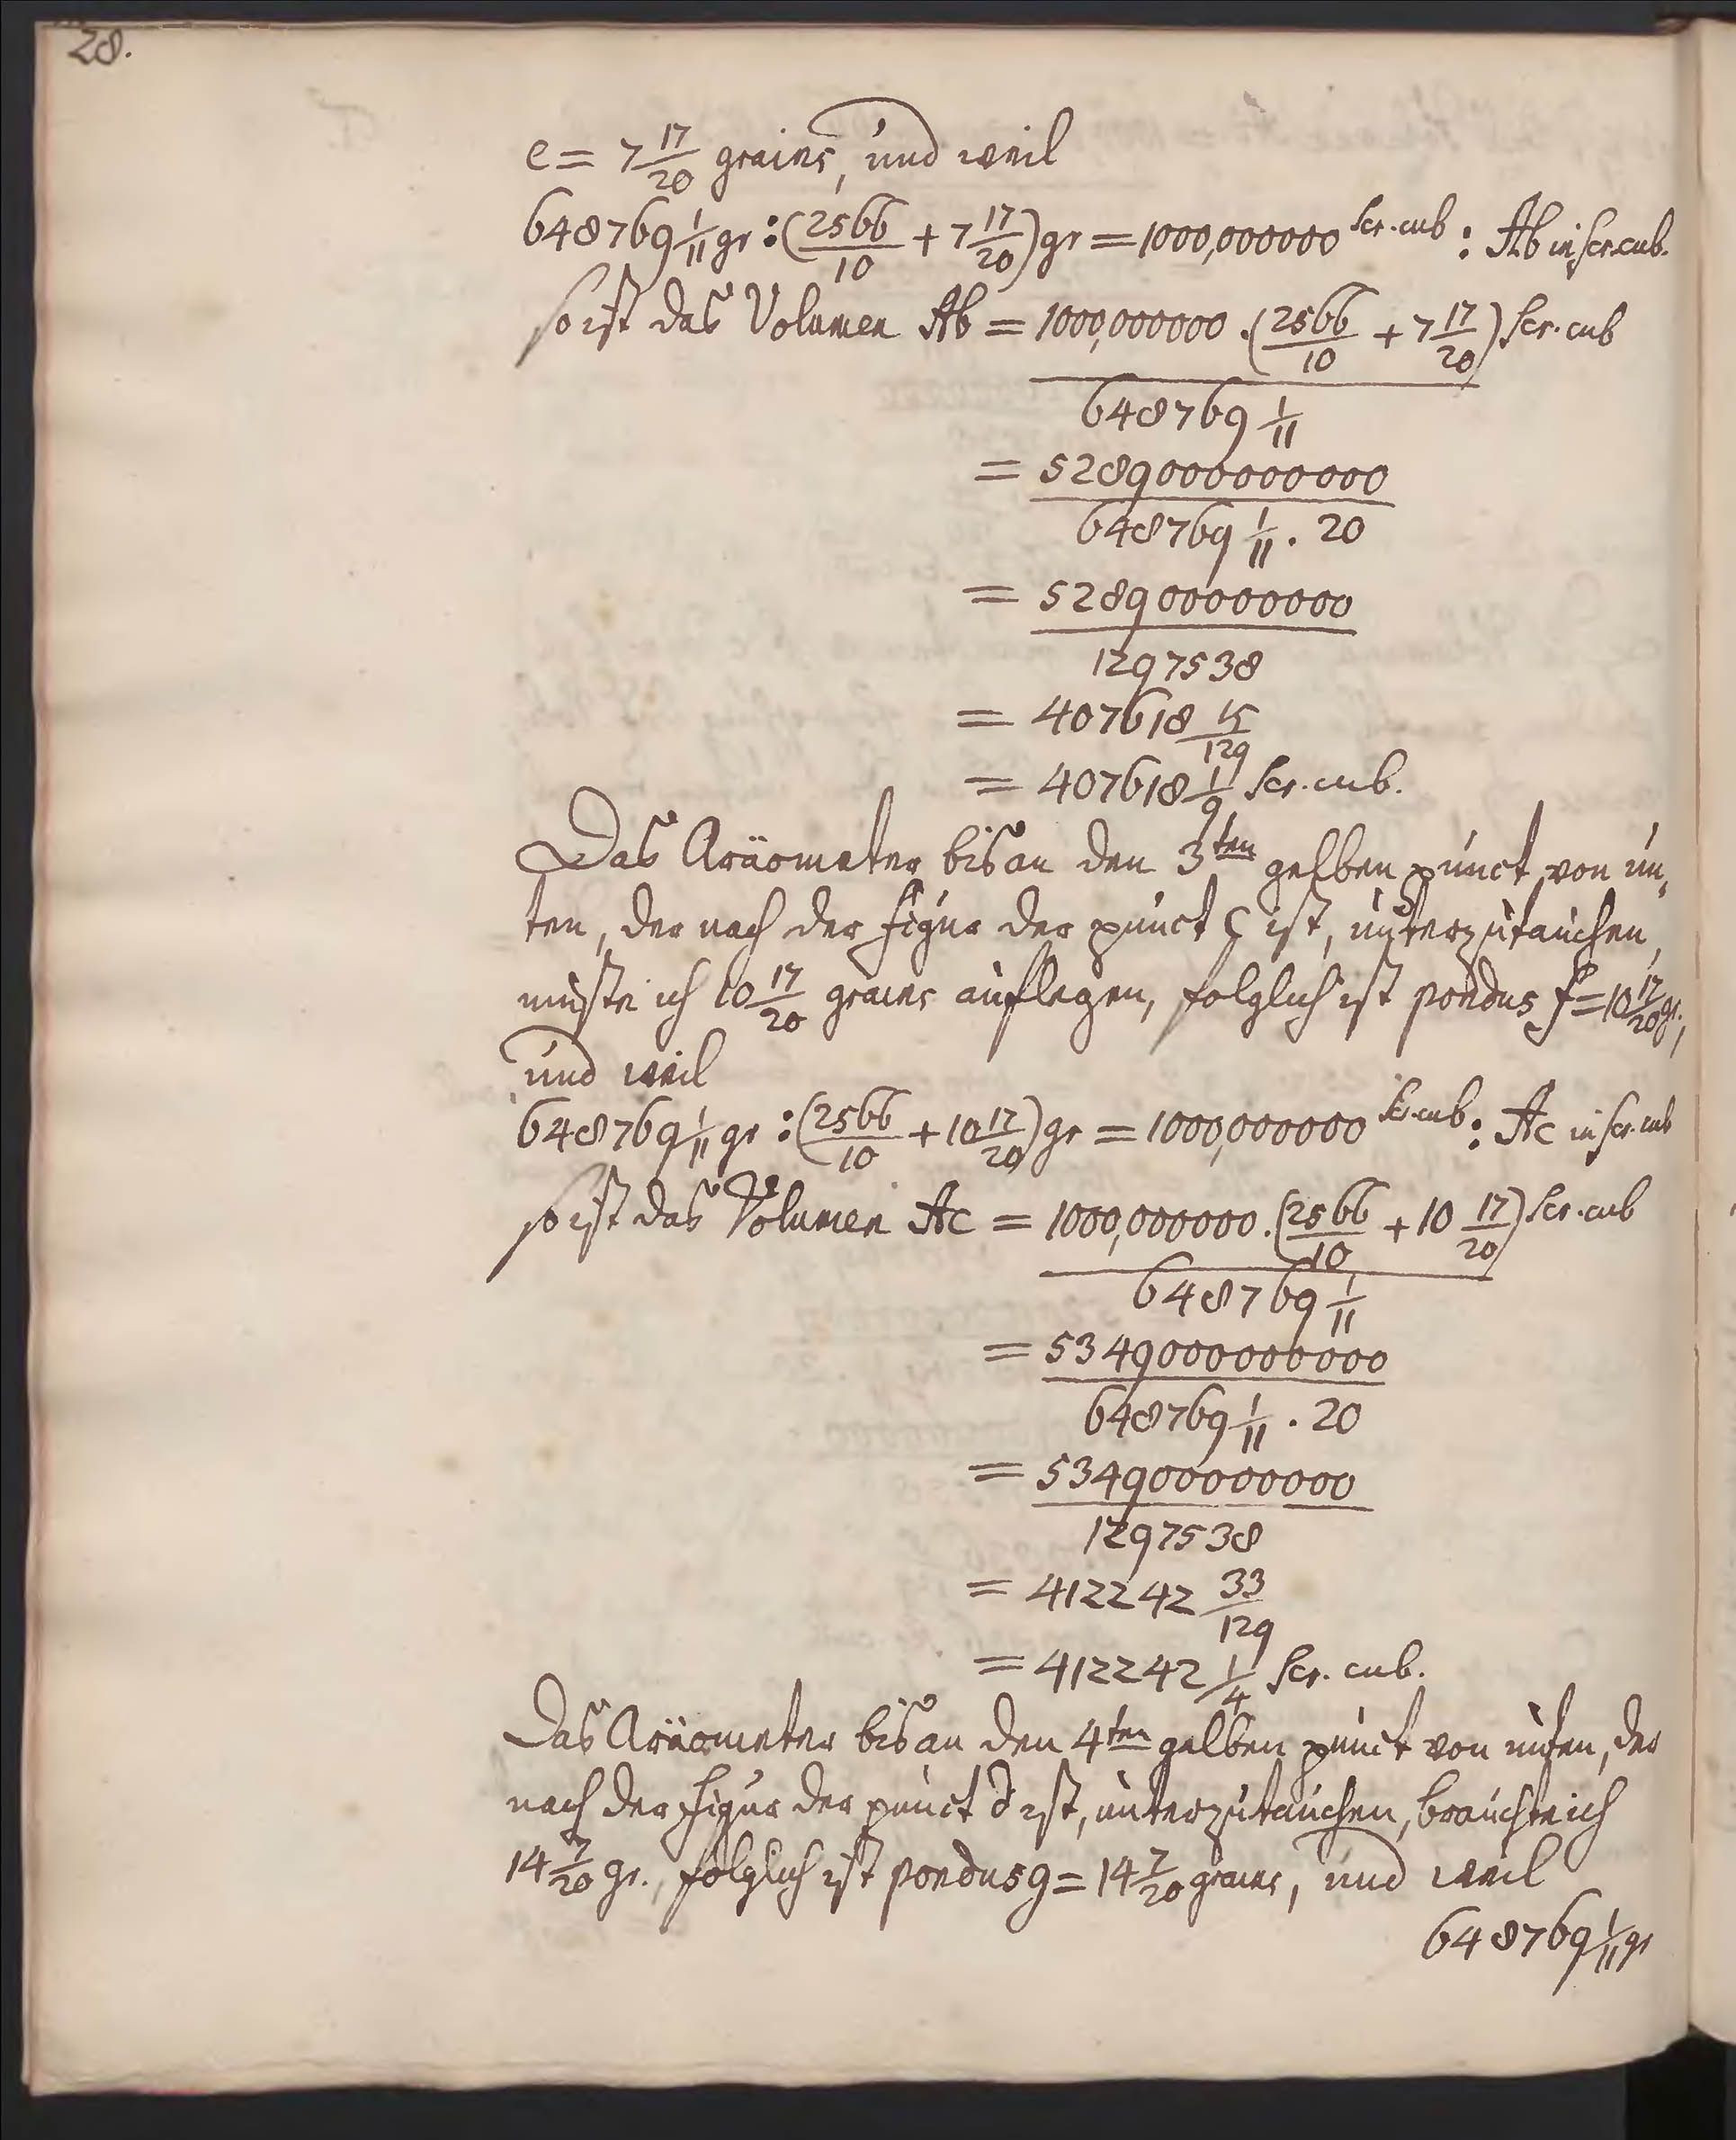 28.
e = 7 17/20 grains, und weil
648769 1/11 gr : (2566/10 + 7 17/20) gr = 1000,000000 Scr. cub : Ab in Scr. cub.
so ist das Volumen Ab = 1000,000000 . (2566/10 + 7 17/20) Scr. cub
648769 1/11
= 5289000000000
648769 1/11 . 20
= 528900000000
1297538
= 407618 15/129
= 407618 1/9 Scr. cub.
Das Aräometer bis an den 3ten gelben punct von un„
ten, der nach der Figur der punct c ist, unterzutauchen,
muste ich 10 17/20 grains auflegen, folglich ist pondus f = 10 17/20 gr.,
und weil
648769 1/11 gr : (2566/10 + 10 17/20) gr = 1000,000000 Scr. cub : Ac in Scr. cub
so ist das Volumen Ac = 1000,000000 . (2566/10 + 10 17/20) Scr. cub
648769 1/11
= 5349000000000
648769 1/11 . 20
= 534900000000
1297538
= 412242 33/129
= 412242 1/4 Scr. cub.
Das Aräometer bis an den 4ten gelben punct von unten, der
nach der Figur der punct d ist, unterzutauchen, brauchte ich
14 7/20 gr., folglich ist pondus g = 14 7/20 grains, und weil
648769 1/11 gr